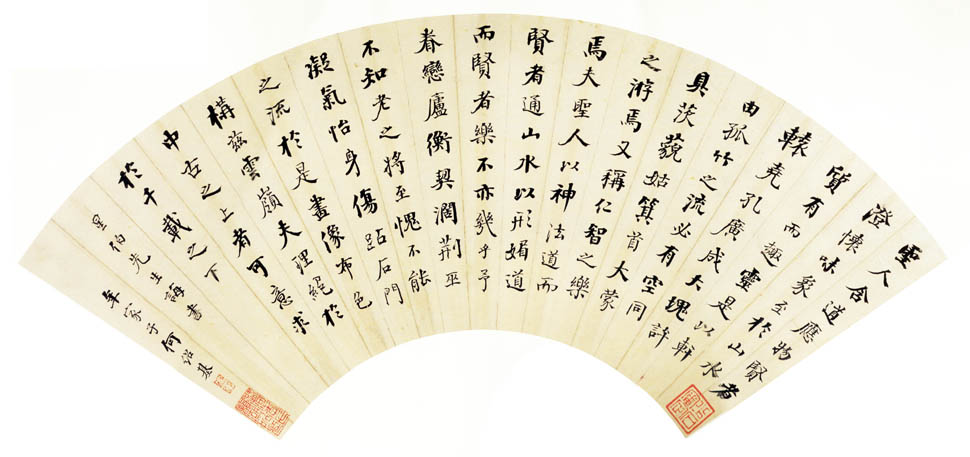 聖人含道應物賢者
澄懷味象至於山水
質有而趣靈是以軒
轅堯孔廣成大瑰許
由孤竹之流必有空同
具茨藐姑箕首大蒙
之游焉又稱仁智之樂
焉夫聖人以神法道而
賢者通山水以形媚道
而賢者樂不亦幾乎予
眷戀廬衡契濶荊巫
不知老之將至愧不能
凝氣怡身傷跕石門
之流於是畫像布色
構茲雲嶺夫理絕於
中古之上者可意求
於千載之下
星伯先生誨書
年家子何紹基